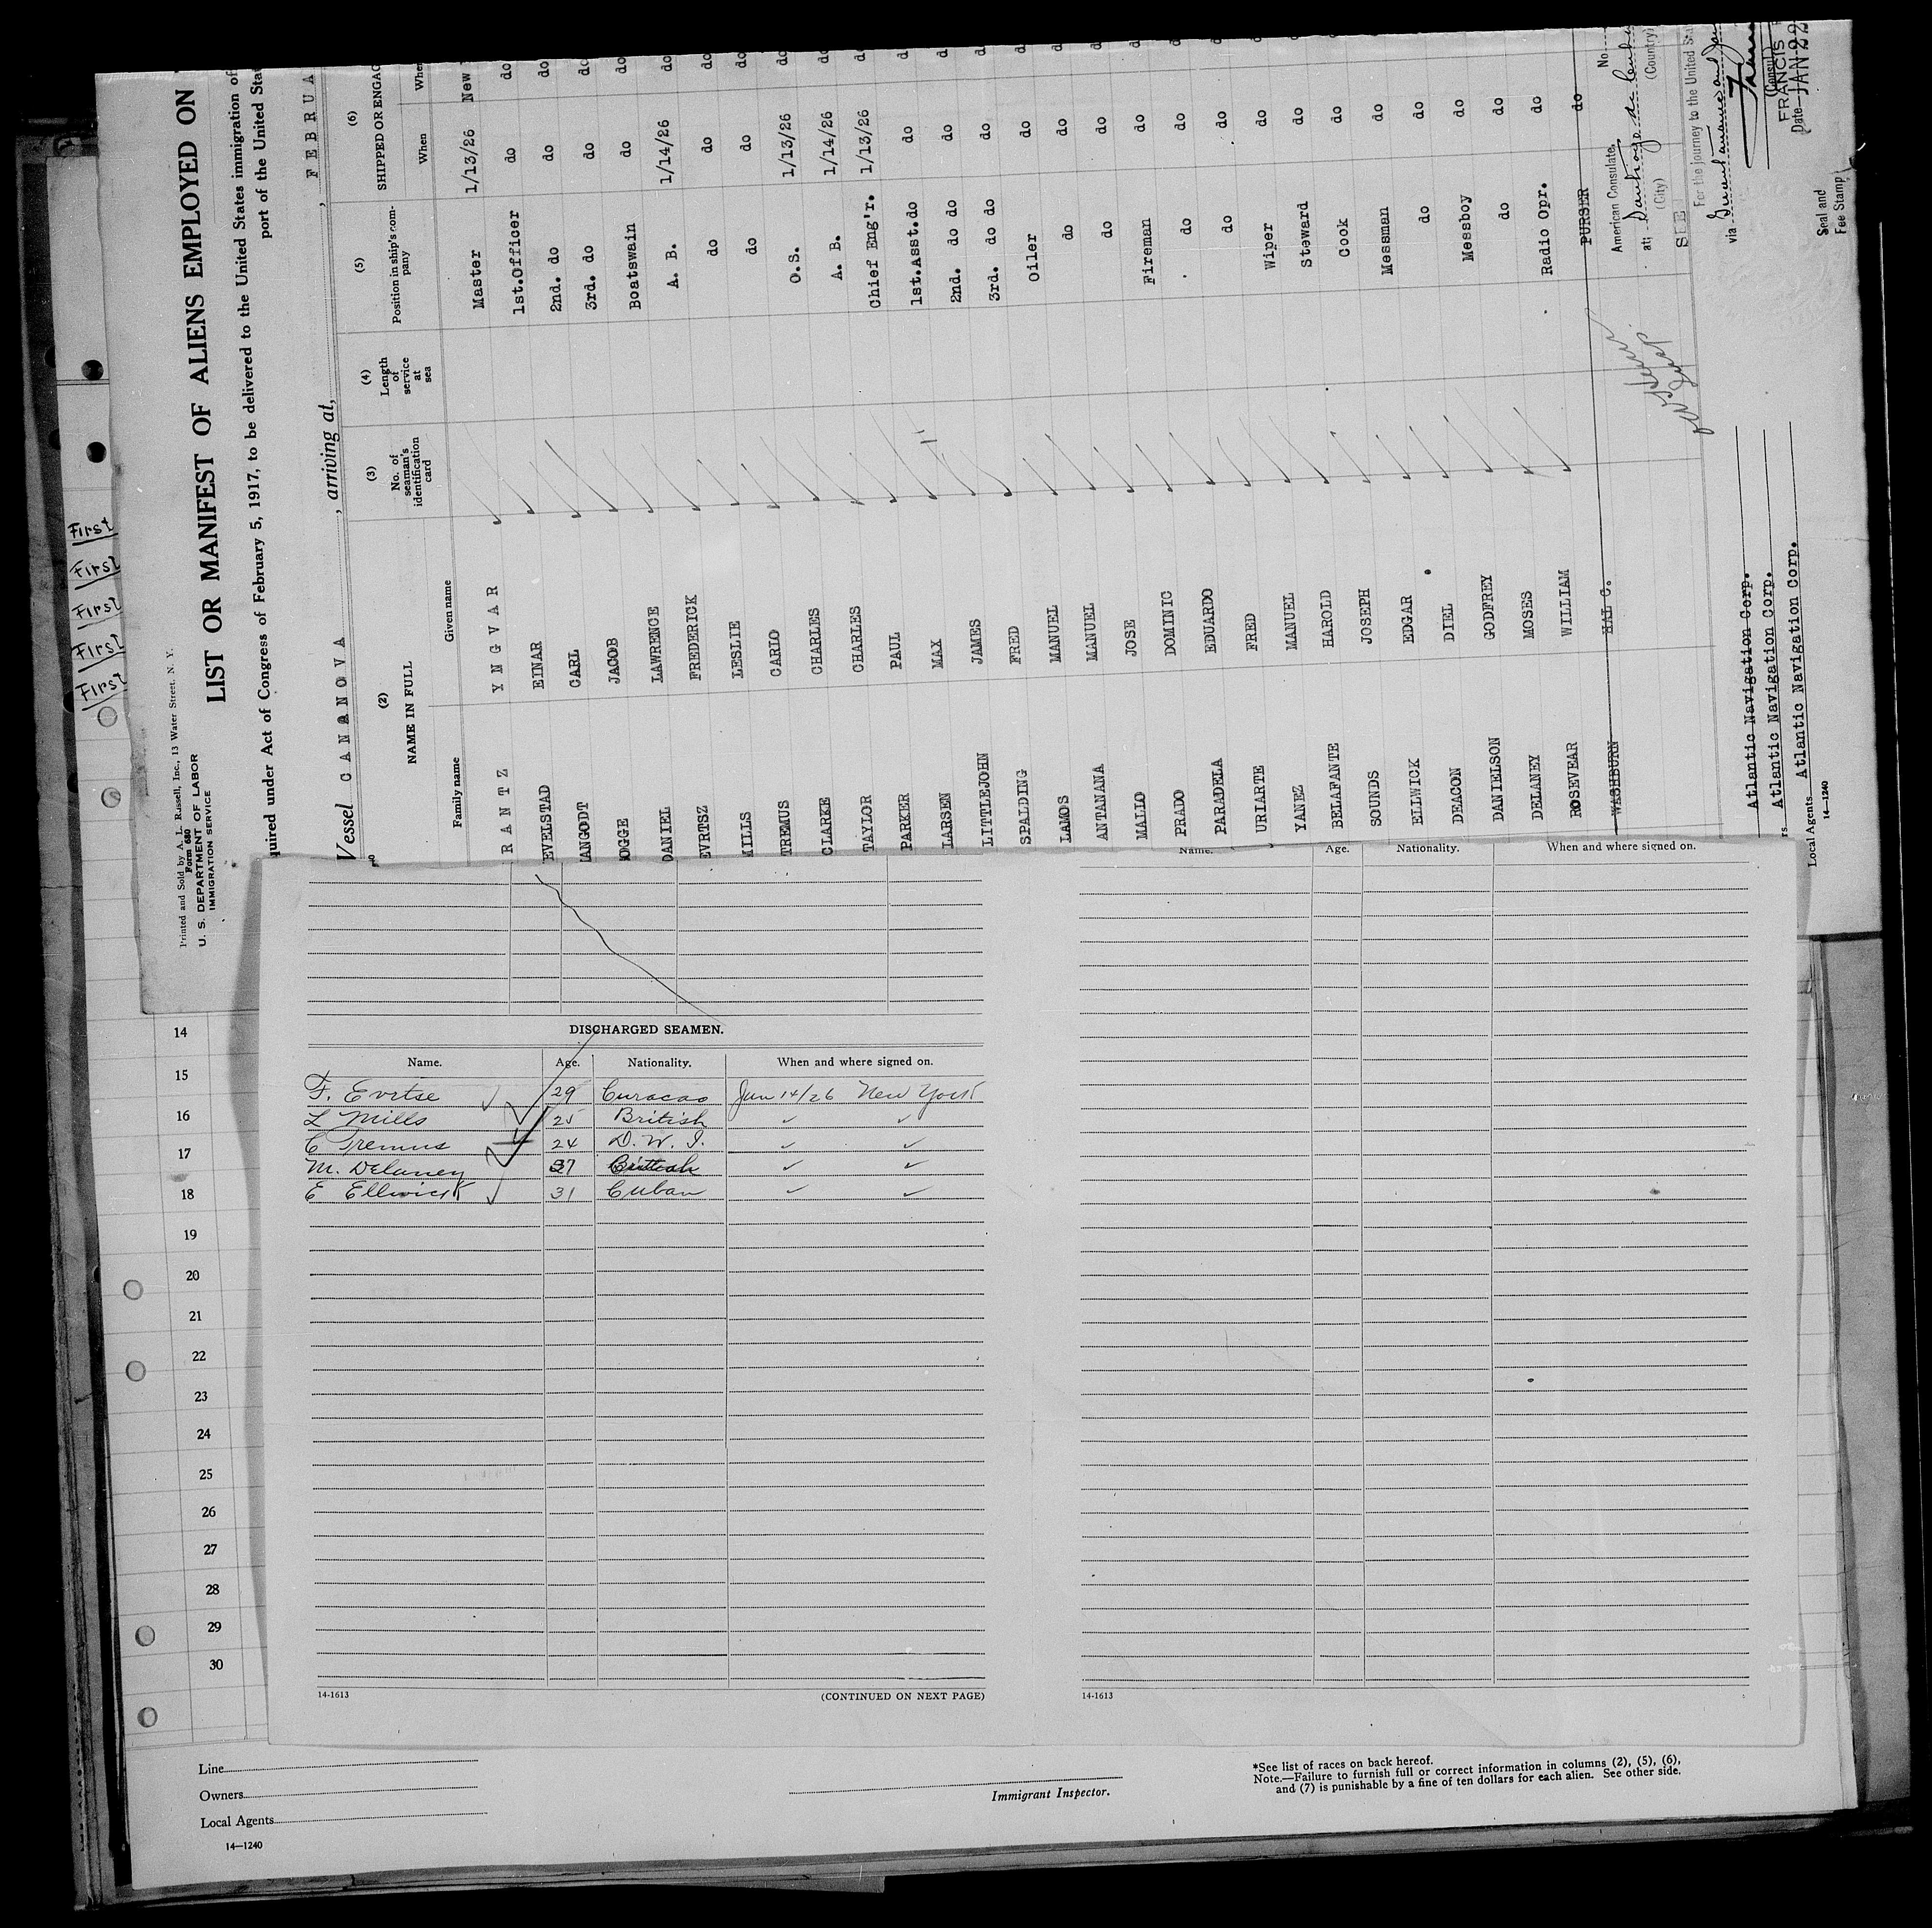 First
First
First
First
First
Printed and Sold by A. L. Russell, Inc., 13 Water Street, N. Y.
Form 680
U. S. DEPARTMENT OF LABOR
IMMIGRATION SERVICE
LIST OR MANIFEST OF ALIENS EMPLOYED ON
quired under Act of Congress of February 5, 1917, to be delivered to the United States immigration of
port of the United Sta
Vessel CANANOVA, arriving at, , FEBRUA
(2) (3) (4) (5) (6)
NAME IN FULL No. of seaman's identification card Length of service at sea Position in ship's company SHIPPED OR ENGAG
Family name Given name When Wher
RANTZ YNGVAR Master 1/13/26 New
EVELSTAD EINAR 1st.Officer do do
ANGODT CARL 2nd. do do do
OGGE JACOB 3rd. do do do
DANIEL LAWRENCE Boatswain do do
EVRTSZ FREDERICK A. B. 1/14/26 do
MILLS LESLIE do do do
TREMUS CARLO do do do
CLARKE CHARLES O.S. 1/13/26 do
TAYLOR CHARLES A. B. 1/14/26 do
PARKER PAUL Chief Eng'r. 1/13/26 d
LARSEN MAX 1st.Asst.do do d
LITTLEJOHN JAMES 2nd. do do do d
SPALDING FRED 3rd. do do do d
LAMOS MANUEL Oiler do d
ANTANANA MANUEL do do d
MALLO JOSE do do d
PRADO DOMINIC Fireman do d
PARADELA EDUARDO do do d
URIARTE FRED do do d
YANEZ MANUEL Wiper do d
BELAFANTE HAROLD Steward do d
SOUNDS JOSEPH Cook do d
ELLWICK EDGAR Messman do d
DEACON DIEL do do d
DANIELSON GODFREY Messboy do d
DELANEY MOSES do do
ROSEVEAR WILLIAM Radio Opr. do
WASHBURN HAL C. PURSER do
American Consulate, No.
at; Santiago de Cuba
(City) (Country)
For the journey to the United Sta
via Guantanamo and
(Consul)
FRANCIS
Date JAN 22
Seal and
Fee Stamp
Atlantic Navigation Corp.
rs Atlantic Navigation Corp.
Local Agents Atlantic Navigation Corp.
14—1240
DISCHARGED SEAMEN.
Name. Age. Nationality. When and where signed on.
F. Evrtse 29 Curacao Jan 14/26 New York
L Mills 25 British ✓ ✓
C Tremus 24 D. W. I. ✓ ✓
M. Delaney 37 British ✓ ✓
E Ellwick 31 Cuban ✓ ✓
14-1613 (CONTINUED ON NEXT PAGE)
Name. Age. Nationality. When and where signed on.
14-1613
14
15
16
17
18
19
20
21
22
23
24
25
26
27
28
29
30
Line
Owners
Local Agents
14—1240
Immigrant Inspector.
*See list of races on back hereof.
Note.—Failure to furnish full or correct information in columns (2), (5), (6),
and (7) is punishable by a fine of ten dollars for each alien. See other side.